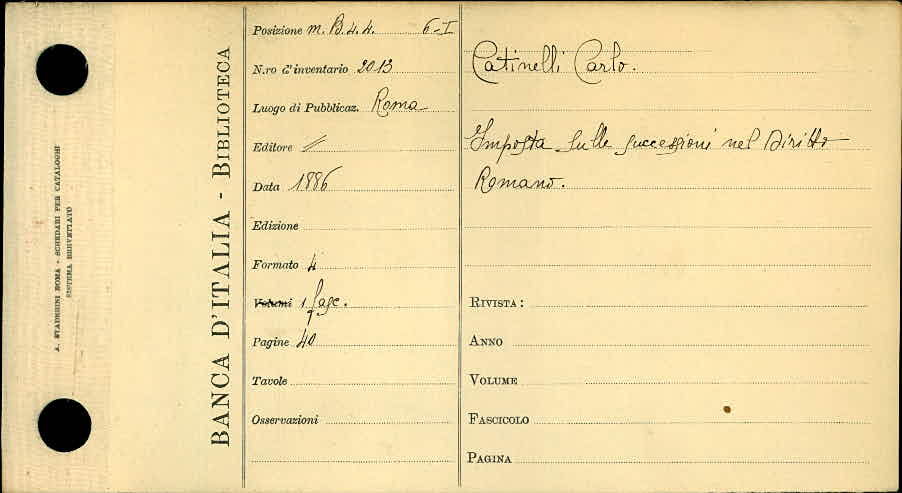 A. STADERINI ROMA - SCHEDARI PER CATALOGHI
SISTEMA BREVETTATO
BANCA D'ITALIA - BIBLIOTECA
Posizione m. B. 4. 4. 6-I
N.ro d'inventario 2013
Luogo di Pubblicaz. Roma
Editore //
Data 1886
Edizione
Formato 4
Volumi 1 fasc.
Pagine 40
Tavole
Osservazioni
Catinelli Carlo.
Imposta sulle successioni nel Diritto
Romano.
RIVISTA:
ANNO
VOLUME
FASCICOLO
PAGINA